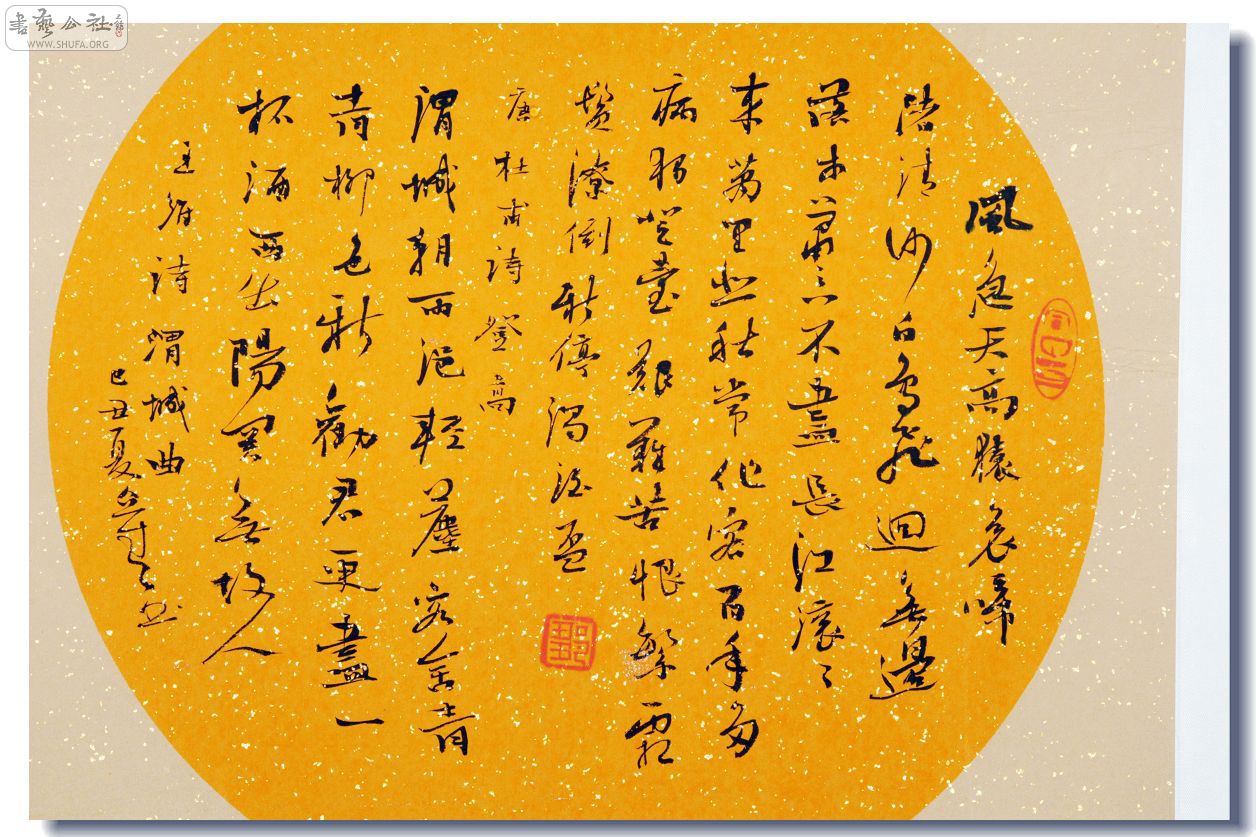 書藝公社
WWW.SHUFA.ORG
風急天高猿哀啼
渚清沙白鳥飛迴無邊
落木蕭〻下不盡長江滾〻
來萬里悲秋常作客百年多
病獨登臺艱難苦恨繁霜
鬢潦倒新停濁酒盃
唐杜甫詩登高
渭城朝雨浥輕塵客舍青
青柳色新勸君更盡一
杯酒西出陽關無故人
王維詩渭城曲
己丑夏